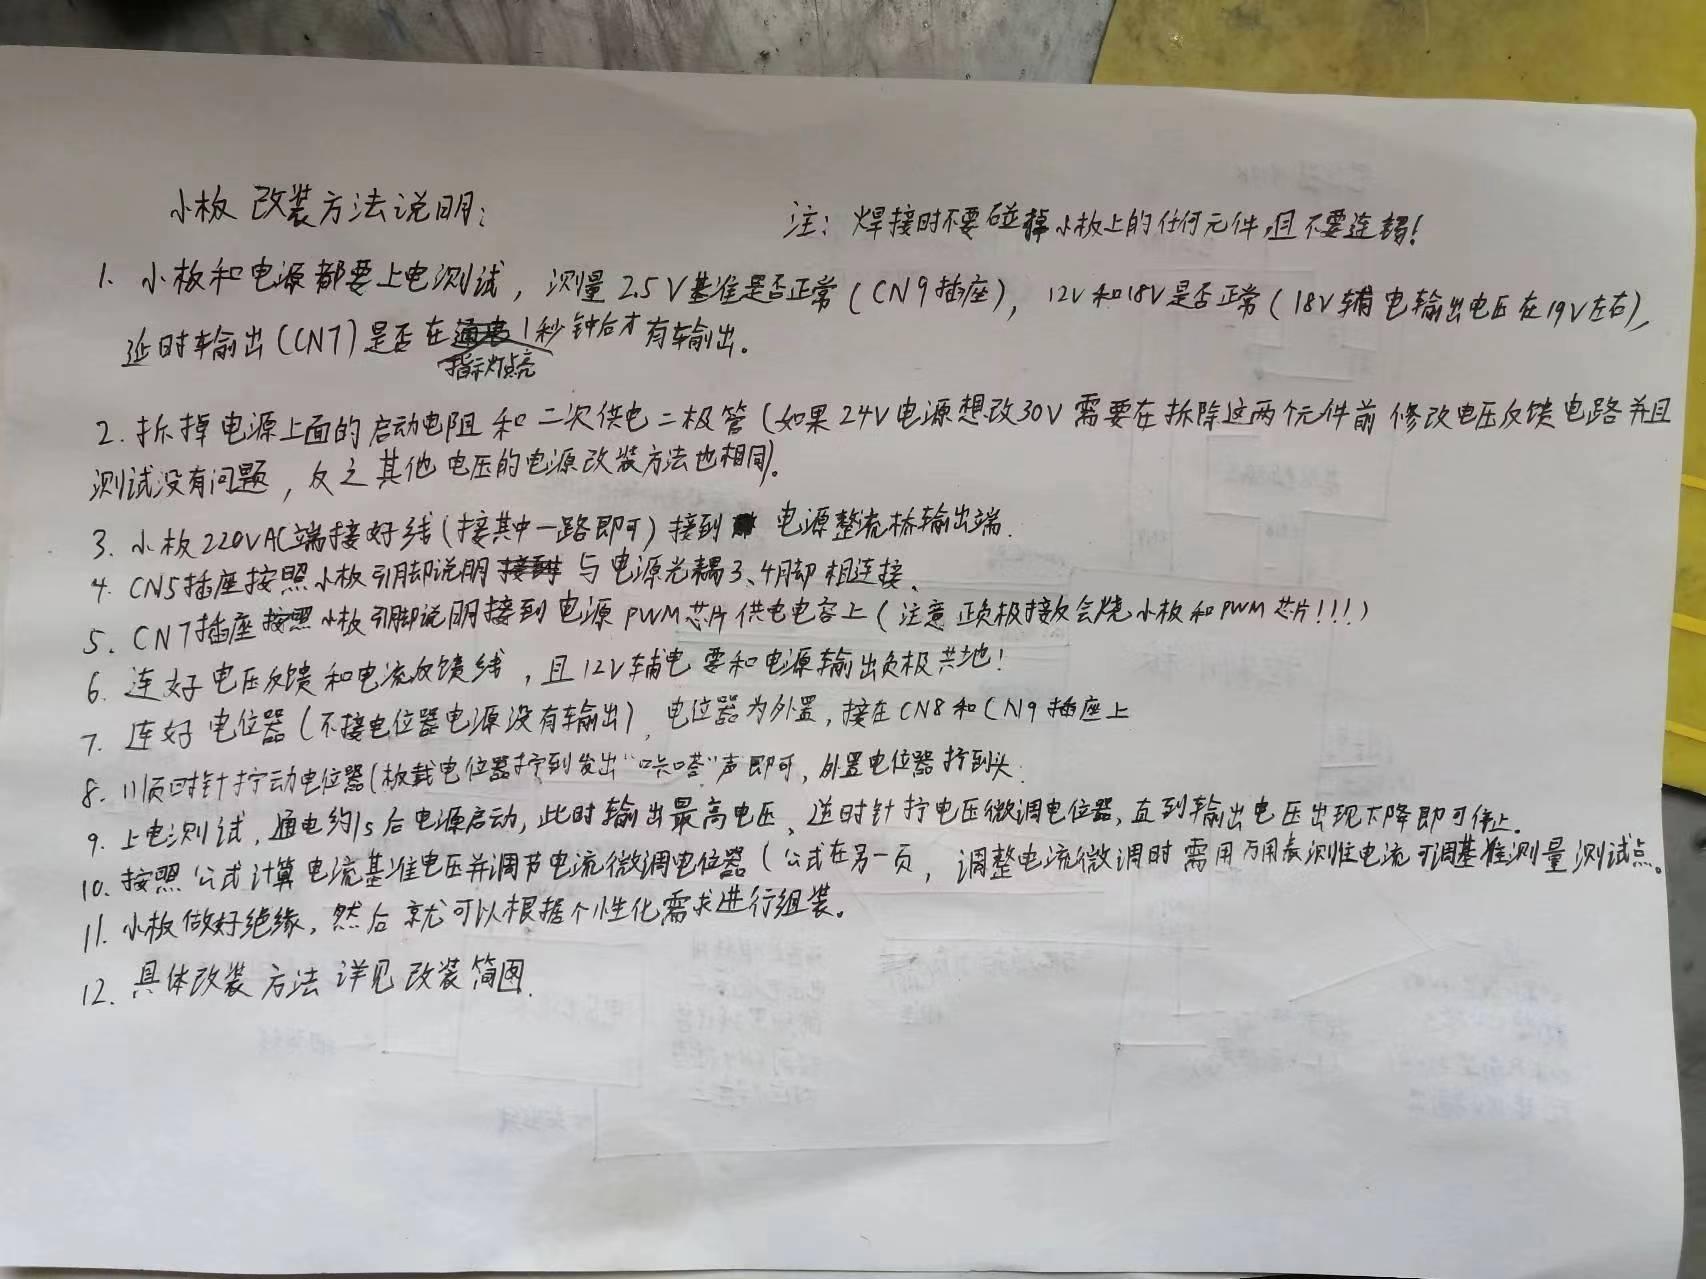 小板改装方法说明：
注：焊接时不要碰掉小板上的任何元件，且不要连锡！
1. 小板和电源都要上电测试，测量2.5V基准是否正常（CN9插座），12V和18V是否正常（18V辅电输出电压在19V左右），
延时输出（CN7）是否在指示灯点亮1秒钟后才有输出。
2. 拆掉电源上面的启动电阻和二次供电二极管（如果24V电源想改30V需要在拆除这两个元件前修改电压反馈电路并且
测试没有问题，反之其他电压的电源改装方法也相同）。
3. 小板220VAC端接好线（接其中一路即可）接到电源整流桥输出端.
4. CN5插座按照小板引脚说明与电源光耦3、4脚相连接.
5. CN7插座按照小板引脚说明接到电源PWM芯片供电电容上（注意正负极接反会烧小板和PWM芯片!!!）
6. 连好电压反馈和电流反馈线，且12V辅电要和电源输出负极共地！
7. 连好电位器（不接电位器电源没有输出），电位器为外置，接在CN8和CN9插座上
8. 顺时针拧动电位器（板载电位器拧到发出“咔嗒”声即可，外置电位器拧到头.
9. 上电测试，通电约1s后电源启动，此时输出最高电压、逆时针拧电压微调电位器，直到输出电压出现下降即可停止。
10. 按照公式计算电流基准电压并调节电流微调电位器（公式在另一页，调整电流微调时需用万用表测住电流可调基准测量测试点。
11. 小板做好绝缘，然后就可以根据个性化需求进行组装。
12. 具体改装方法详见改装简图.